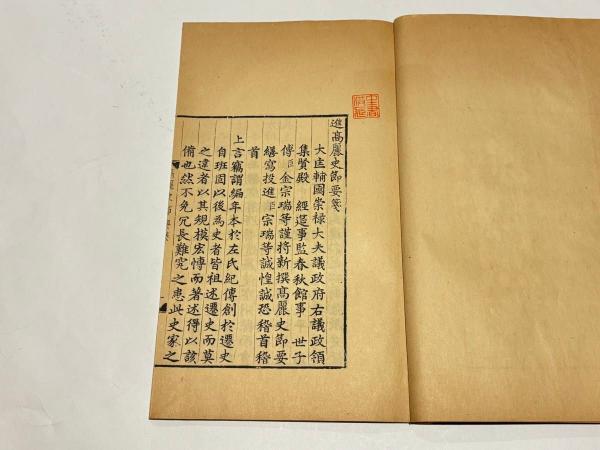 進高麗史節要箋
大匡輔國崇禄大夫議政府右議政領
集賢殿 經筵事監春秋館事 世子
傅臣金宗瑞等謹將新撰高麗史節要
繕寫投進臣宗瑞等誠惶誠恐稽首稽
首
上言竊謂編年本於左氏紀傳創於遷史
自班固以後為史者皆祖述遷史而莫
之違者以其規模宏博而著述得以該
備也然不免冗長難究之患此史家之